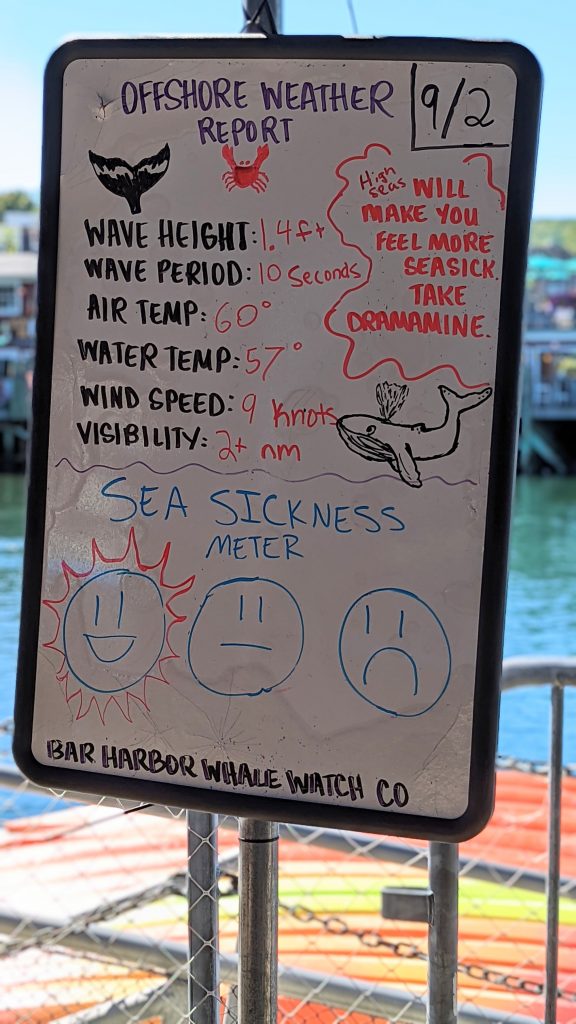 OFFSHORE WEATHER
REPORT
9/2
High
seas WILL
MAKE YOU
FEEL MORE
SEASICK.
TAKE
DRAMAMINE.
WAVE HEIGHT: 1.4 ft
WAVE PERIOD: 10 Seconds
AIR TEMP: 60°
WATER TEMP: 57°
WIND SPEED: 9 Knots
VISIBILITY: 2+ nm
SEA SICKNESS
METER
BAR HARBOR WHALE WATCH CO